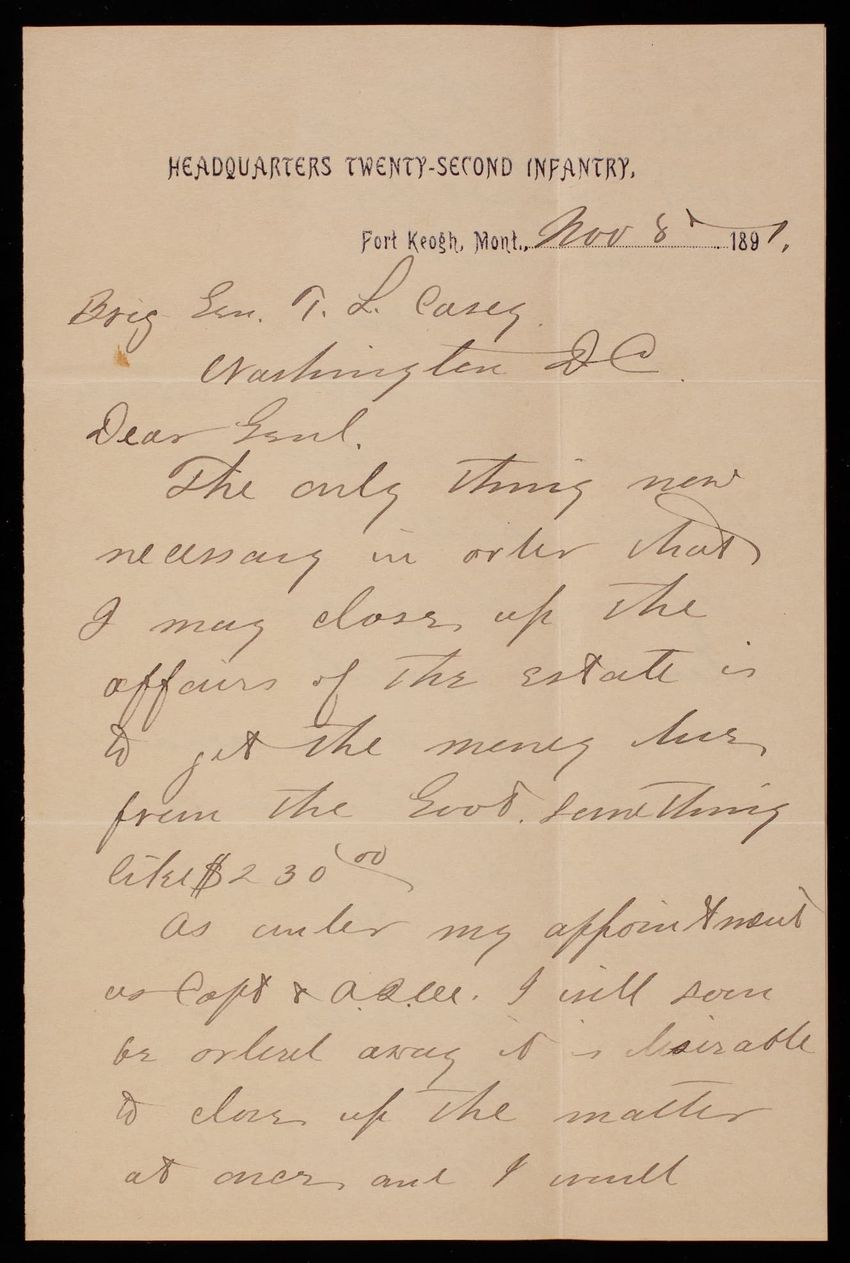 HEADQUARTERS TWENTY-SECOND INFANTRY,
Fort Keogh, Mont., Nov 8th 1891.
Brig Gen. T. L. Casey
Washington D C.
Dear Genl.
The only thing now
necessary in order that
I may close up the
affairs of the estate is
to get the money due
from the Govt. Something
like $230 00
As under my appointment
as Capt & A.Q.M. I will soon
be ordered away it is desirable
to close up the matter
at once and I would